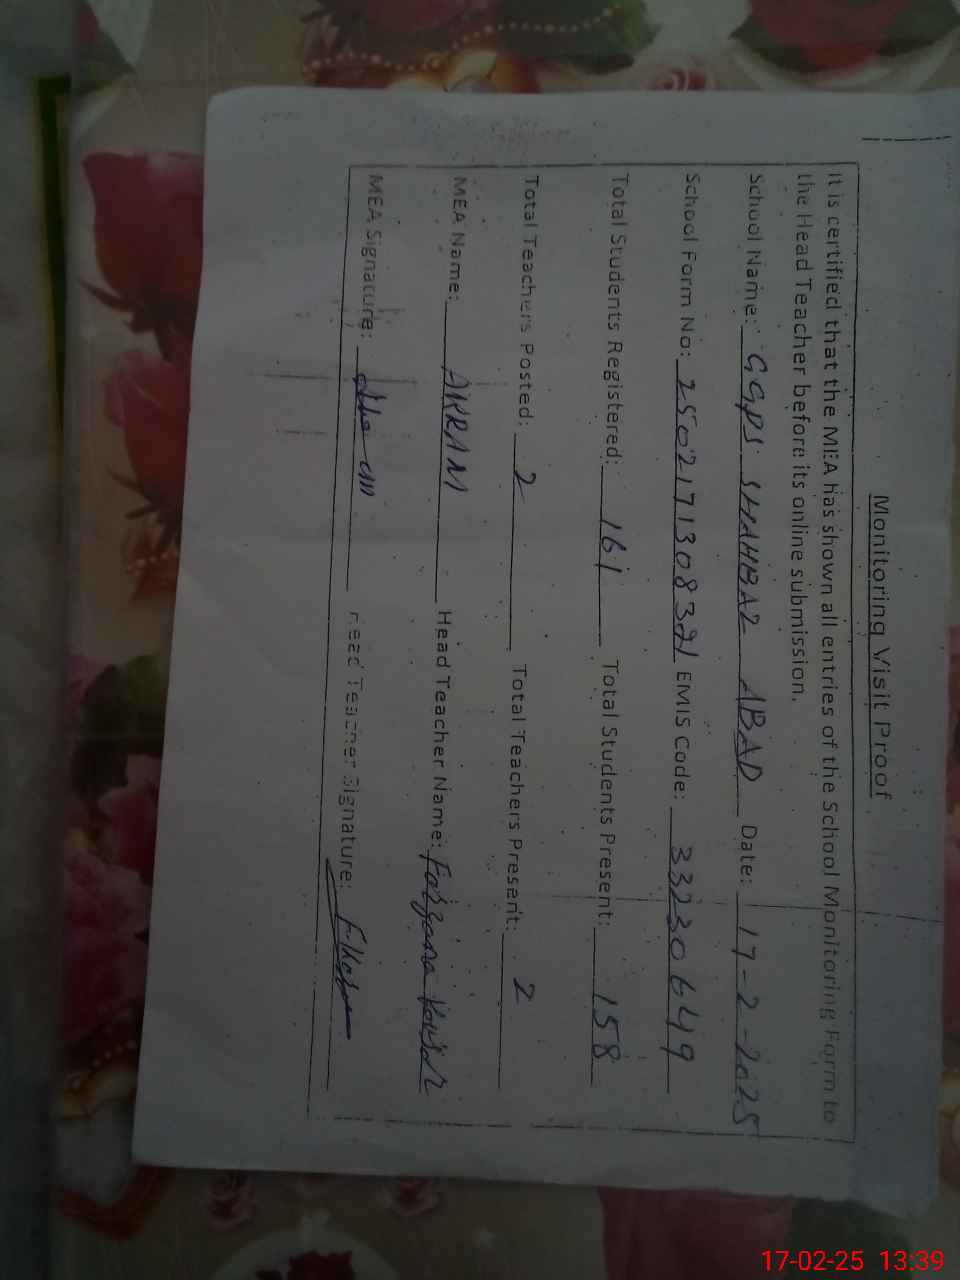 Monitoring Visit Proof
It is certified that the MEA has shown all entries of the School Monitoring Form to
the Head Teacher before its online submission.
School Name: GGPS SHAHBAZ ABAD Date: 17-2-2025
School Form No: 2502171308321 EMIS Code: 33230649
Total Students Registered: 161 Total Students Present: 158
Total Teachers Posted: 2 Total Teachers Present: 2
MEA Name: AKRAM Head Teacher Name: Farzana Kousar
MEA Signature: Head Teacher Signature:
17-02-25 13:39